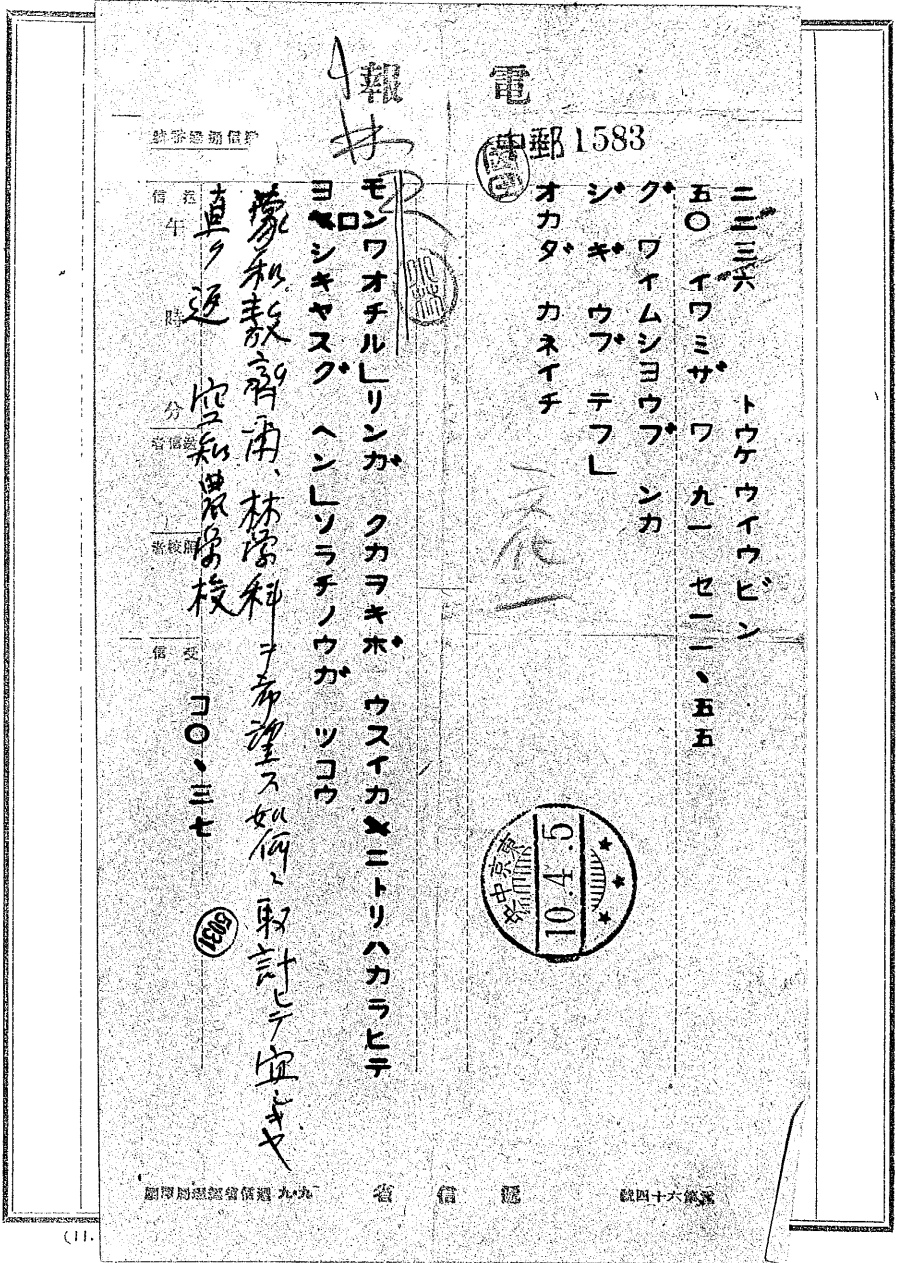 電報
中郵 1583
二二三六 トウケウイウビン
五〇 イワミザワ 九一 セ一一、五五
グワイムシヨウブンカ
ジギウブテフ」
オカダ カネイチ
モンワオチル」リンガクカヲキボウスイカニトリハカラヒテ
ヨロシキヤスグヘン」ソラチノウガツコウ
林学科ヲ希望ス如何ニ取計ヒテ宜シキヤ
直グ返 空知農学校
コ〇、三七
5031
東京中央
10.4.5
午
時
分
信受
逓信省
(11.